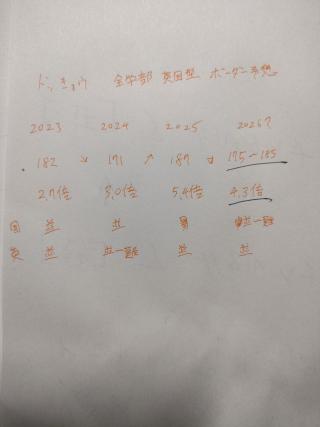 ドッキョウ 全学部 英国型 ボーダー予想
2023 2024 2025 2026?
182 ↘ 171 ↗ 187 ↓ 175〜185
2.7倍 3.0倍 5.4倍 4.3倍
国 並 並 易 並〜難
英 並 並〜難 並 並